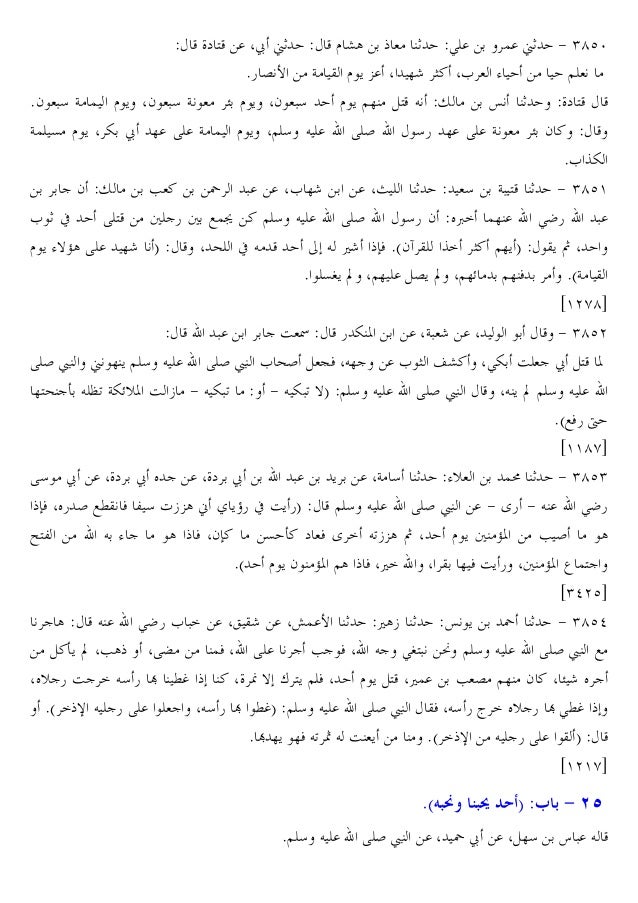 ٣٨٥٠ – حدثني عمرو بن علي: حدثنا معاذ بن هشام قال: حدثني أبي، عن قتادة قال:
ما نعلم حيا من أحياء العرب، أكثر شهيدا، أعز يوم القيامة من الأنصار.
قال قتادة: وحدثنا أنس بن مالك: أنه قتل منهم يوم أحد سبعون، ويوم بئر معونة سبعون، ويوم اليمامة سبعون.
وقال: وكان بئر معونة على عهد رسول الله صلى الله عليه وسلم، ويوم اليمامة على عهد أبي بكر، يوم مسيلمة
الكذاب.
٣٨٥١ – حدثنا قتيبة بن سعيد: حدثنا الليث، عن ابن شهاب، عن عبد الرحمن بن كعب بن مالك: أن جابر بن
عبد الله رضي الله عنهما أخبره: أن رسول الله صلى الله عليه وسلم كن يجمع بين رجلين من قتلى أحد في ثوب
واحد، ثم يقول: (أيهم أكثر أخذا للقرآن). فإذا أشير له إلى أحد قدمه في اللحد، وقال: (أنا شهيد على هؤلاء يوم
القيامة). وأمر بدفنهم بدمائهم، ولم يصل عليهم، ولم يغسلوا.
[١٢٧٨]
٣٨٥٢ – وقال أبو الوليد، عن شعبة، عن ابن المنكدر قال: سمعت جابر ابن عبد الله قال:
لما قتل أبي جعلت أبكي، وأكشف الثوب عن وجهه، فجعل أصحاب النبي صلى الله عليه وسلم ينهونني والنبي صلى
الله عليه وسلم لم ينه، وقال النبي صلى الله عليه وسلم: (لا تبكيه – أو: ما تبكيه – مازالت الملائكة تظله بأجنحتها
حتى رفع).
[١١٨٧]
٣٨٥٣ – حدثنا محمد بن العلاء: حدثنا أسامة، عن بريد بن عبد الله بن أبي بردة، عن جده أبي بردة، عن أبي موسى
رضي الله عنه – أرى – عن النبي صلى الله عليه وسلم قال: (رأيت في رؤياي أني هززت سيفا فانقطع صدره، فإذا
هو ما أصيب من المؤمنين يوم أحد، ثم هززته أخرى فعاد كأحسن ما كان، فاذا هو ما جاء به الله من الفتح
واجتماع المؤمنين، ورأيت فيها بقرا، والله خير، فاذا هم المؤمنون يوم أحد).
[٣٤٢٥]
٣٨٥٤ – حدثنا أحمد بن يونس: حدثنا زهير: حدثنا الأعمش، عن شقيق، عن خباب رضي الله عنه قال: هاجرنا
مع النبي صلى الله عليه وسلم ونحن نبتغي وجه الله، فوجب أجرنا على الله، فمنا من مضى، أو ذهب، لم يأكل من
أجره شيئا، كان منهم مصعب بن عمير، قتل يوم أحد، فلم يترك إلا نمرة، كنا إذا غطينا بها رأسه خرجت رجلاه،
وإذا غطي بها رجلاه خرج رأسه، فقال النبي صلى الله عليه وسلم: (غطوا بها رأسه، واجعلوا على رجليه الإذخر). أو
قال: (ألقوا على رجليه من الإذخر). ومنا من أينعت له ثمرته فهو يهدبها.
[١٢١٧]
٢٥ – باب: (أحد يحبنا ونحبه).
قاله عباس بن سهل، عن أبي حميد، عن النبي صلى الله عليه وسلم.